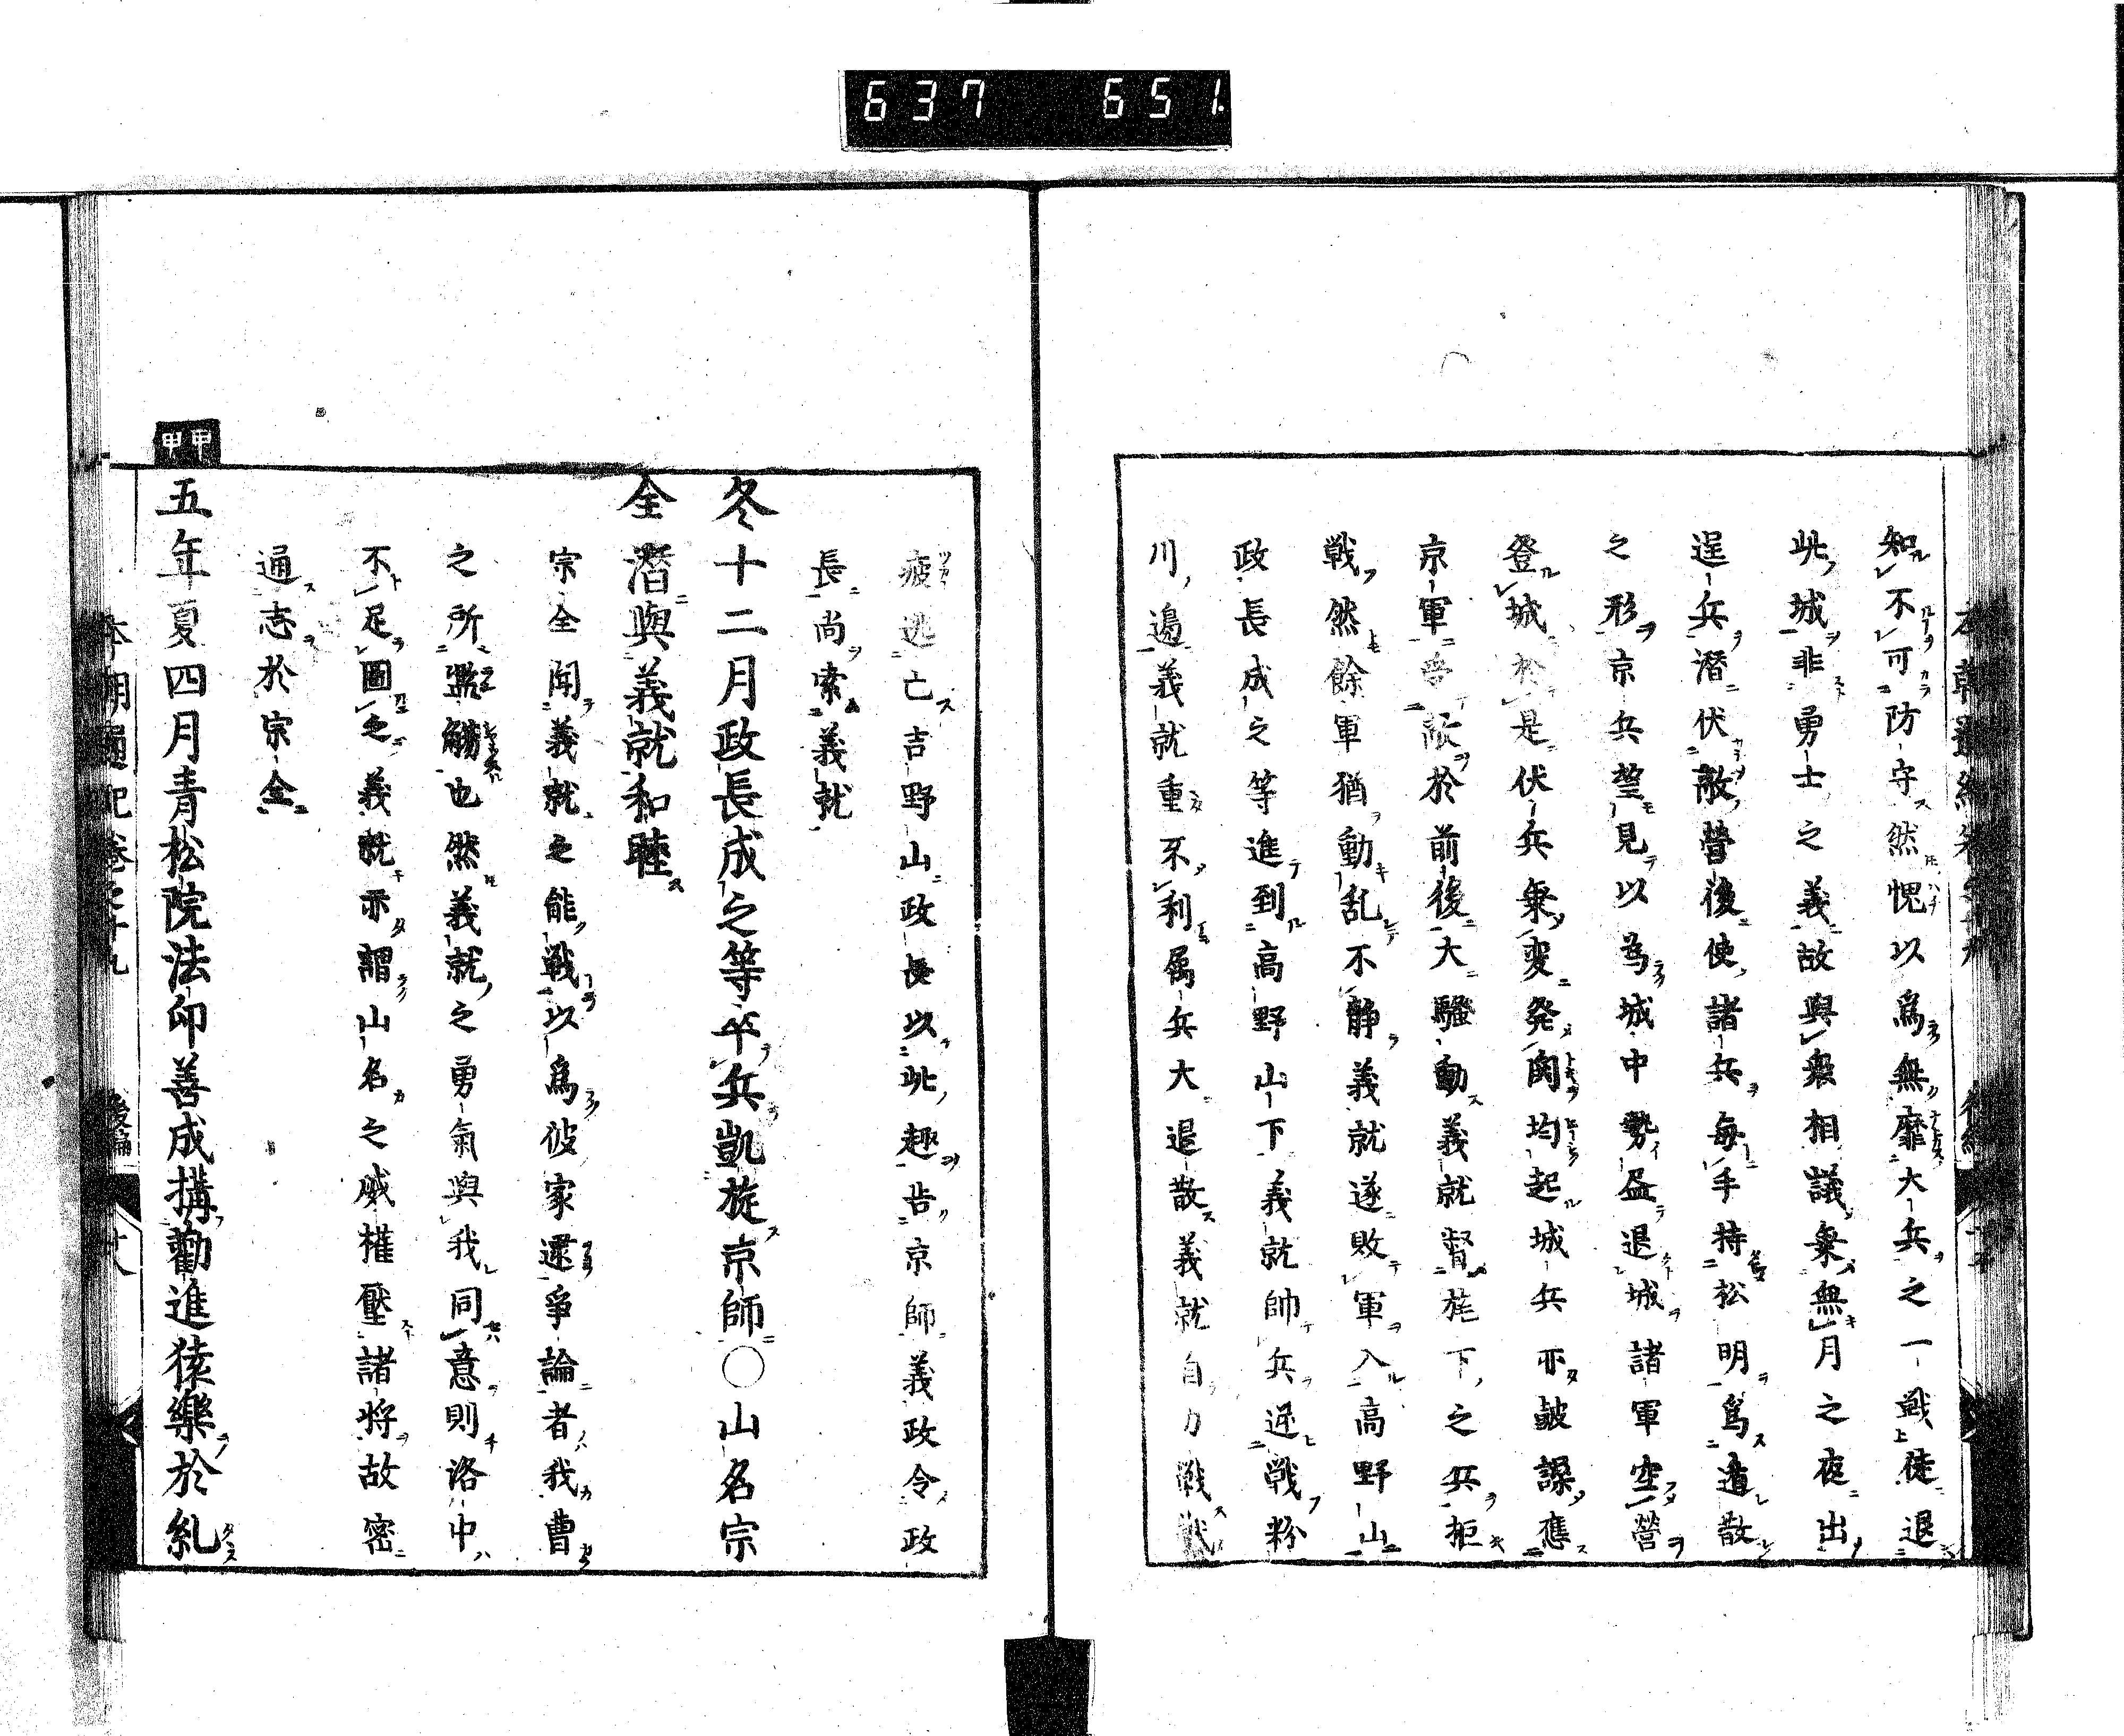 637 651
知不可防守然愧以爲無靡大兵之一戦徒退
此城非勇士之義故與衆相議棄無月之夜出
逞兵潜伏敵營後使諸兵毎手持松明爲遁散
之形京兵望見以為城中勢盈退城諸軍空營
登城於是伏兵乗変発関均起城兵亦皷譟應
京軍夾敵於前後大騒動義就督旄下之兵拒
戦然餘軍猶動乱不静義就遂敗軍入高野山
政長成之等進到高野山下義就帥兵逆戦粉
川邊義就重不利属兵大退散義就自力戦
疲逃亡吉野山政長以此趣告京師義政令政
長尚索義就
冬十二月政長成之等卒兵凱旋京師○山名宗
全潛與義就和睦
宗全聞義就之能戦以爲彼家還爭論者我曹
之所濫觴也然義就之勇氣與我同意則洛中
不足圖之義就亦謂山名之威權壓諸将故密
通志於宗全
甲申
五年夏四月青松院法印善成搆勸進猿樂於糺
本朝通紀巻之十九 後編 廿八